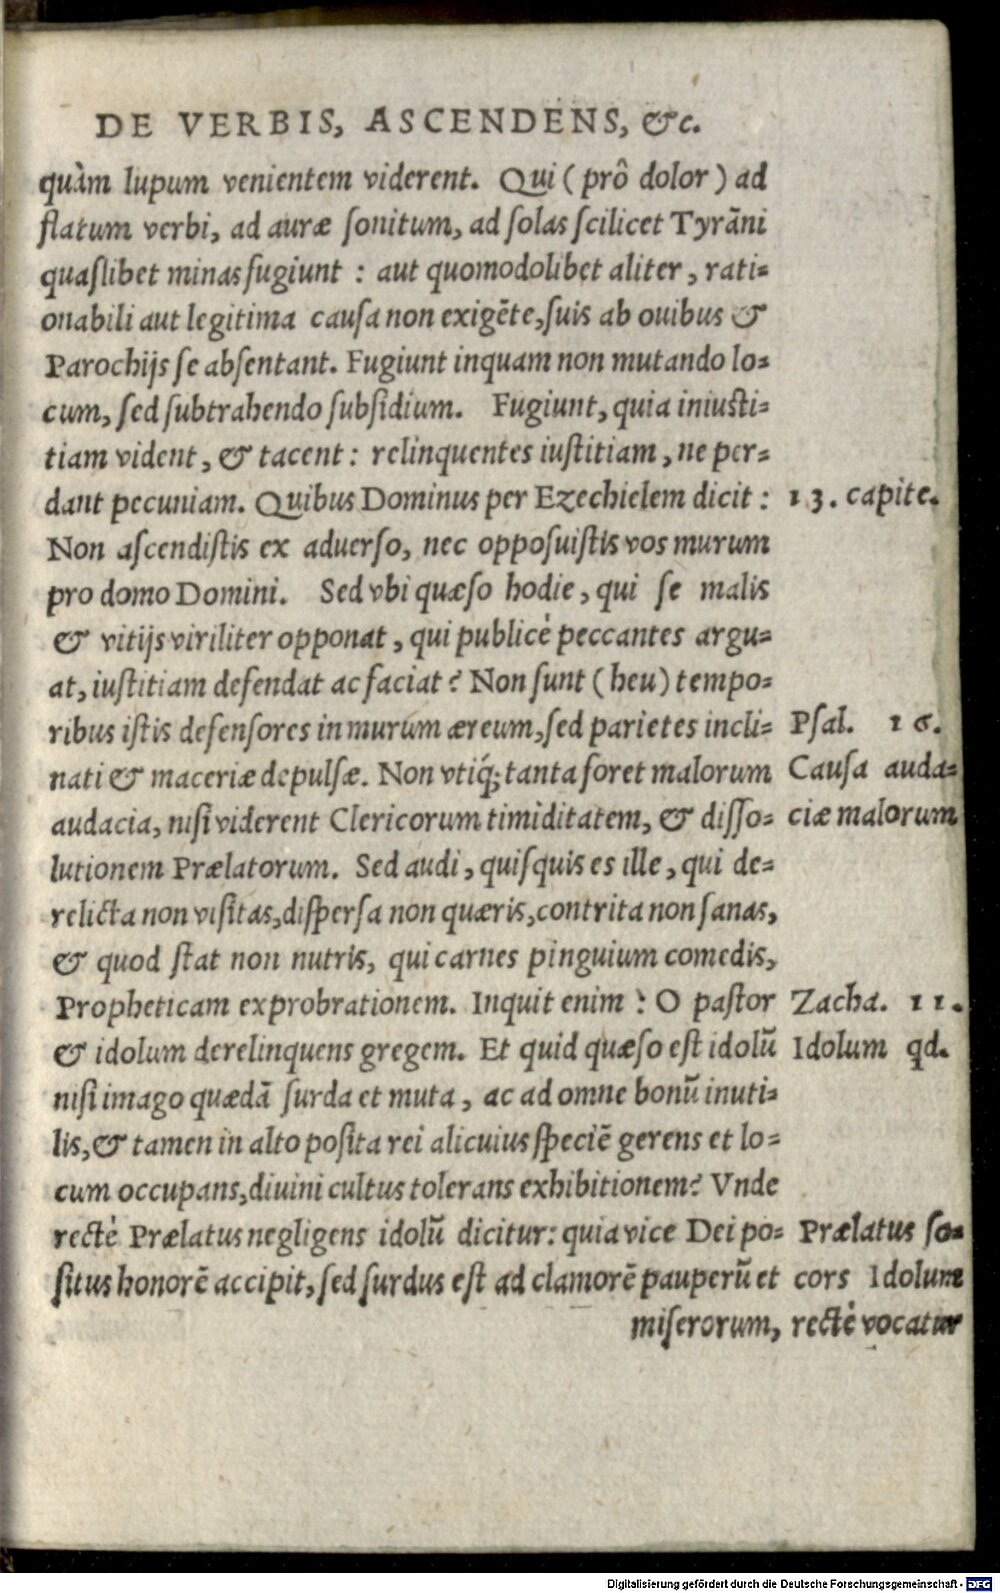 DE VERBIS, ASCENDENS, &c.
quàm lupum venientem viderent. Qui (prô dolor) ad
flatum verbi, ad auræ ſonitum, ad ſolas ſcilicet Tyrāni
quaſlibet minas fugiunt : aut quomodolibet aliter, rati-
onabili aut legitima cauſa non exigēte, ſuis ab ouibus &
Parochijs ſe abſentant. Fugiunt inquam non mutando lo-
cum, ſed ſubtrahendo ſubſidium. Fugiunt, quia iniuſti-
tiam vident, & tacent : relinquentes iuſtitiam, ne per-
dant pecuniam. Quibus Dominus per Ezechielem dicit : 13. capite.
Non aſcendiſtis ex aduerſo, nec oppoſuiſtis vos murum
pro domo Domini. Sed vbi quæſo hodie, qui ſe malis
& vitijs viriliter opponat, qui publicè peccantes argu-
at, iuſtitiam defendat ac faciat? Non ſunt (heu) tempo-
ribus iſtis defenſores in murum æreum, ſed parietes incli- Pſal. 16.
nati & maceriæ depulſæ. Non vtiq́; tanta foret malorum Cauſa auda-
audacia, niſi viderent Clericorum timiditatem, & diſſo- ciæ malorum
lutionem Prælatorum. Sed audi, quiſquis es ille, qui de-
relicta non viſitas, diſperſa non quæris, contrita non ſanas,
& quod ſtat non nutris, qui carnes pinguium comedis,
Propheticam exprobrationem. Inquit enim : O paſtor Zacha. 11.
& idolum derelinquens gregem. Et quid quæſo eſt idolū Idolum qd.
niſi imago quædā ſurda et muta, ac ad omne bonū inuti-
lis, & tamen in alto poſita rei alicuius ſpeciē gerens et lo-
cum occupans, diuini cultus tolerans exhibitionem? Vnde
rectè Prælatus negligens idolū dicitur: quia vice Dei po- Prælatus ſo-
ſitus honorē accipit, ſed ſurdus eſt ad clamorē pauperū et cors Idolum
miſerorum, rectè vocatur
Digitalisierung gefördert durch die Deutsche Forschungsgemeinschaft - DFG